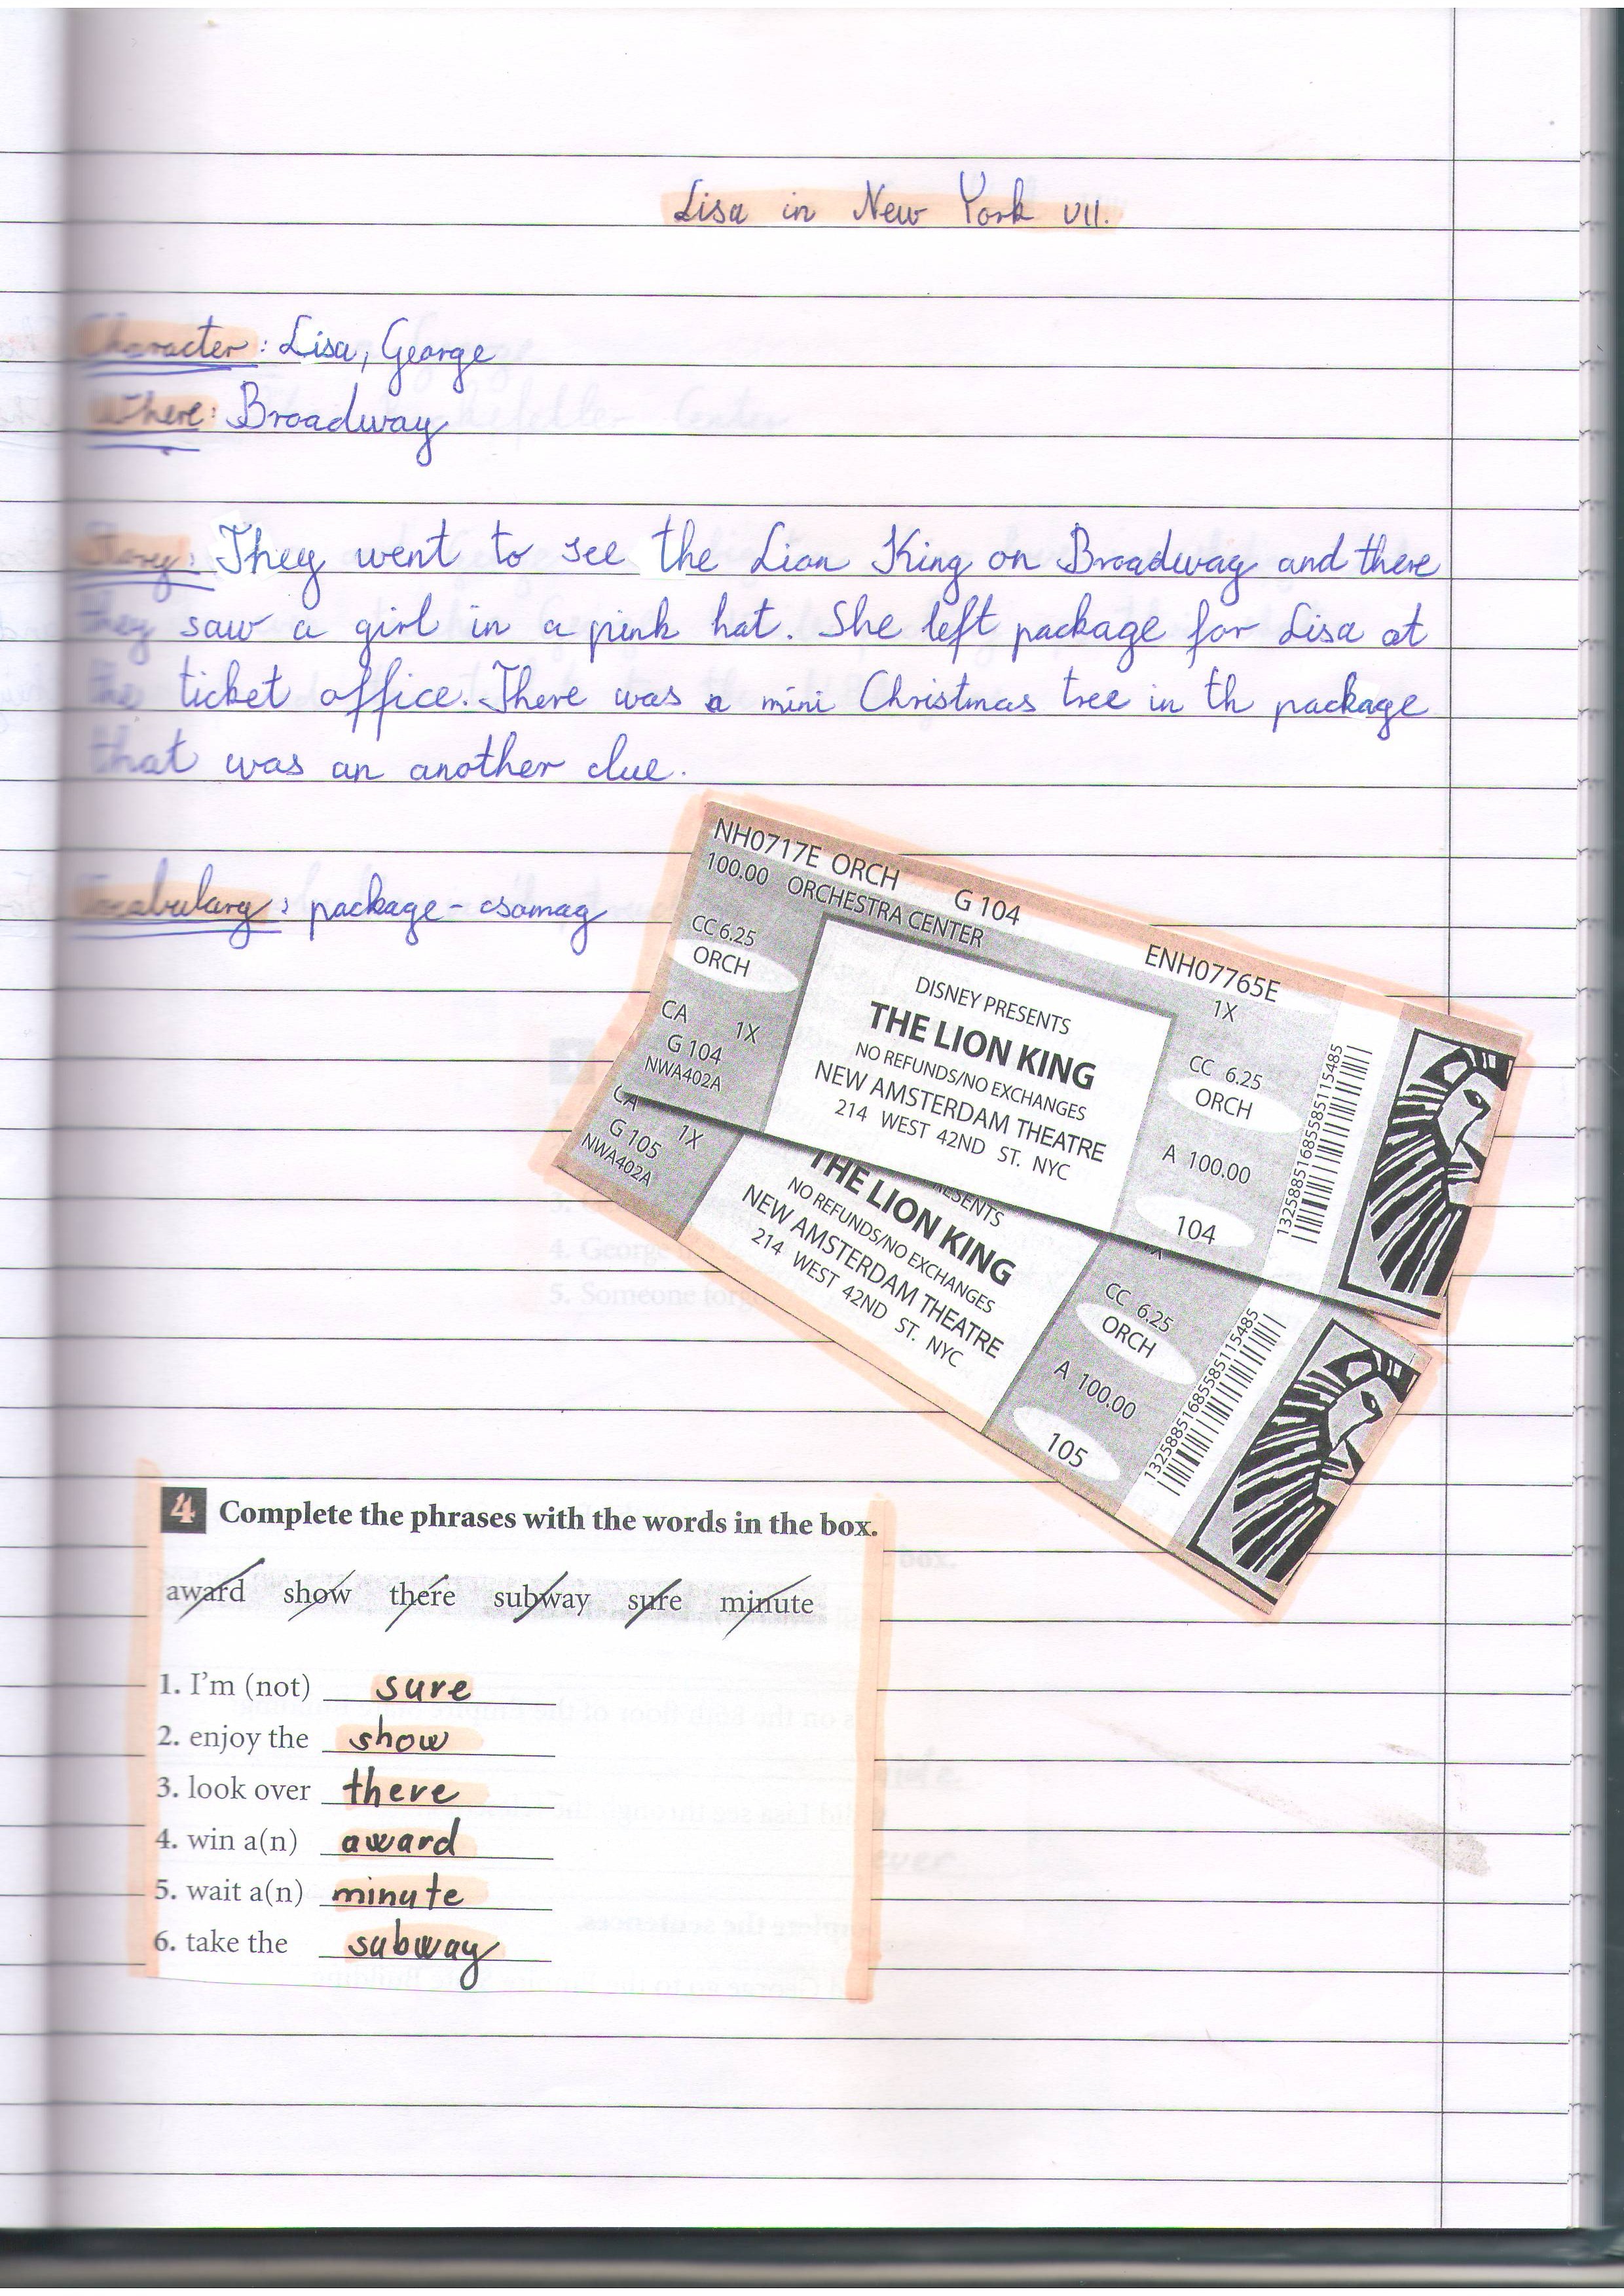 Lisa in New York VII.
Character: Lisa, George
Where: Broadway
Story: They went to see the Lion King on Broadway and there
they saw a girl in a pink hat. She left package for Lisa at
the ticket office. There was a mini Christmas tree in th package
that was an another clue.
Vocabulary: package - csomag
NH0717E ORCH G 104 ENH07765E
100.00 ORCHESTRA CENTER 1X
CC 6.25
ORCH
CA 1X
G 104
NWA402A
DISNEY PRESENTS
THE LION KING
NO REFUNDS/NO EXCHANGES
NEW AMSTERDAM THEATRE
214 WEST 42ND ST. NYC
CC 6.25
ORCH
A 100.00
104
1325885168558511 5485
CA 1X
G 105
NWA402A
THE LION KING
NO REFUNDS/NO EXCHANGES
NEW AMSTERDAM THEATRE
214 WEST 42ND ST. NYC
CC 6.25
ORCH
A 100.00
105
4 Complete the phrases with the words in the box.
award show there subway sure minute
1. I'm (not) sure
2. enjoy the show
3. look over there
4. win a(n) award
5. wait a(n) minute
6. take the subway